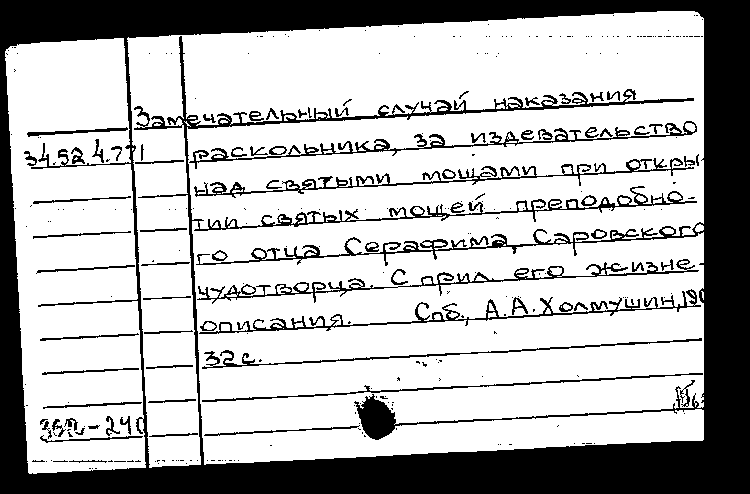 Замечательный случай наказания
34.52.4.771 раскольника, за издевательство
над святыми мощами при откры-
тии святых мощей преподобно-
го отца Серафима, Саровского
чудотворца. С прил. его жизне-
описания. Спб., А.А.Холмушин, 190
32 с.